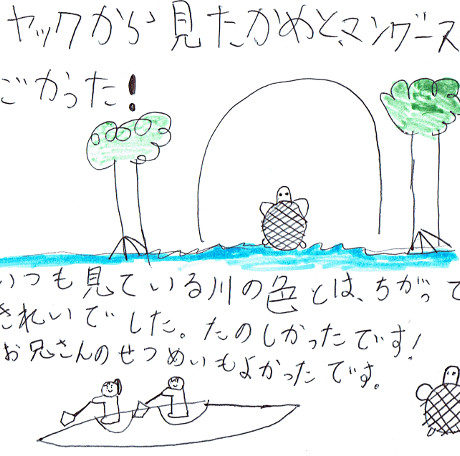 ヤックから見たかめと、マングース
ごかった!
いつも見ている川の色とは、ちがって
きれいでした。たのしかったです!
お兄さんのせつめいもよかったです。